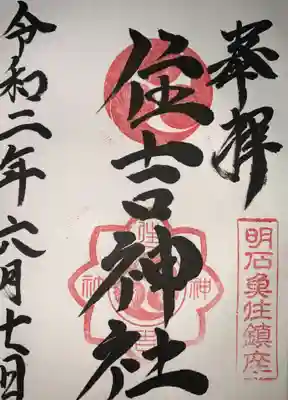 奉拝
明石魚住鎮座
住吉神社
令和二年六月七日